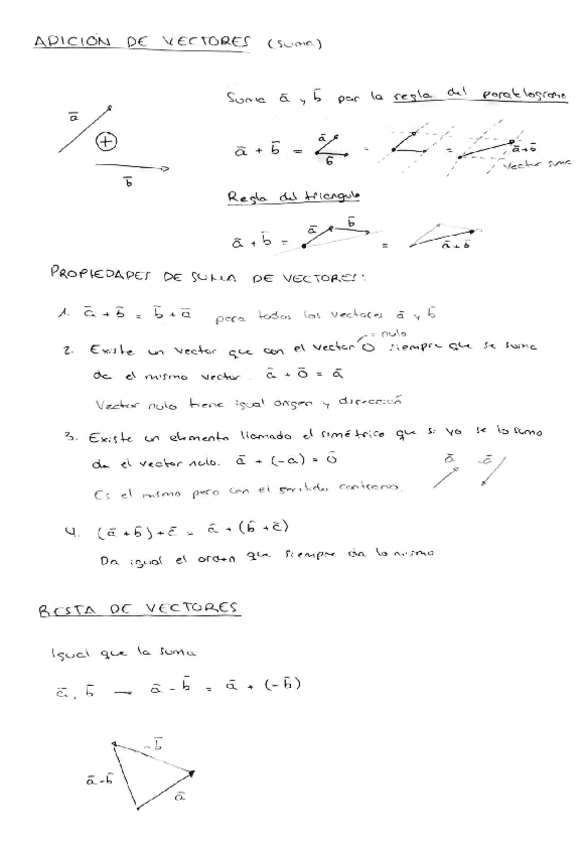 ADICIÓN DE VECTORES (suma)
Suma ā y b̄ por la regla del paralelogramo
ā
+
b̄
ā + b̄ = ā b̄ = = ā+b̄
Vector suma
Regla del triangulo
ā + b̄ = ā b̄ = ā+b̄
PROPIEDADES DE SUMA DE VECTORES:
1. ā + b̄ = b̄ + ā para todos los vectores ā y b̄
= nulo
2. Existe un vector que con el vector O siempre que se suma
da el mismo vector. ā + ō = ā
Vector nulo tiene igual origen y dirección
3. Existe un elemento llamado el simétrico que si yo se lo sumo
da el vector nulo. ā + (-ā) = ō
ā -ā
Es el mismo pero con el sentido contrario.
4. (ā + b̄) + c̄ = ā + (b̄ + c̄)
Da igual el orden que siempre da lo mismo
RESTA DE VECTORES
Igual que la suma
ā, b̄ → ā - b̄ = ā + (-b̄)
-b̄
ā-b̄
ā